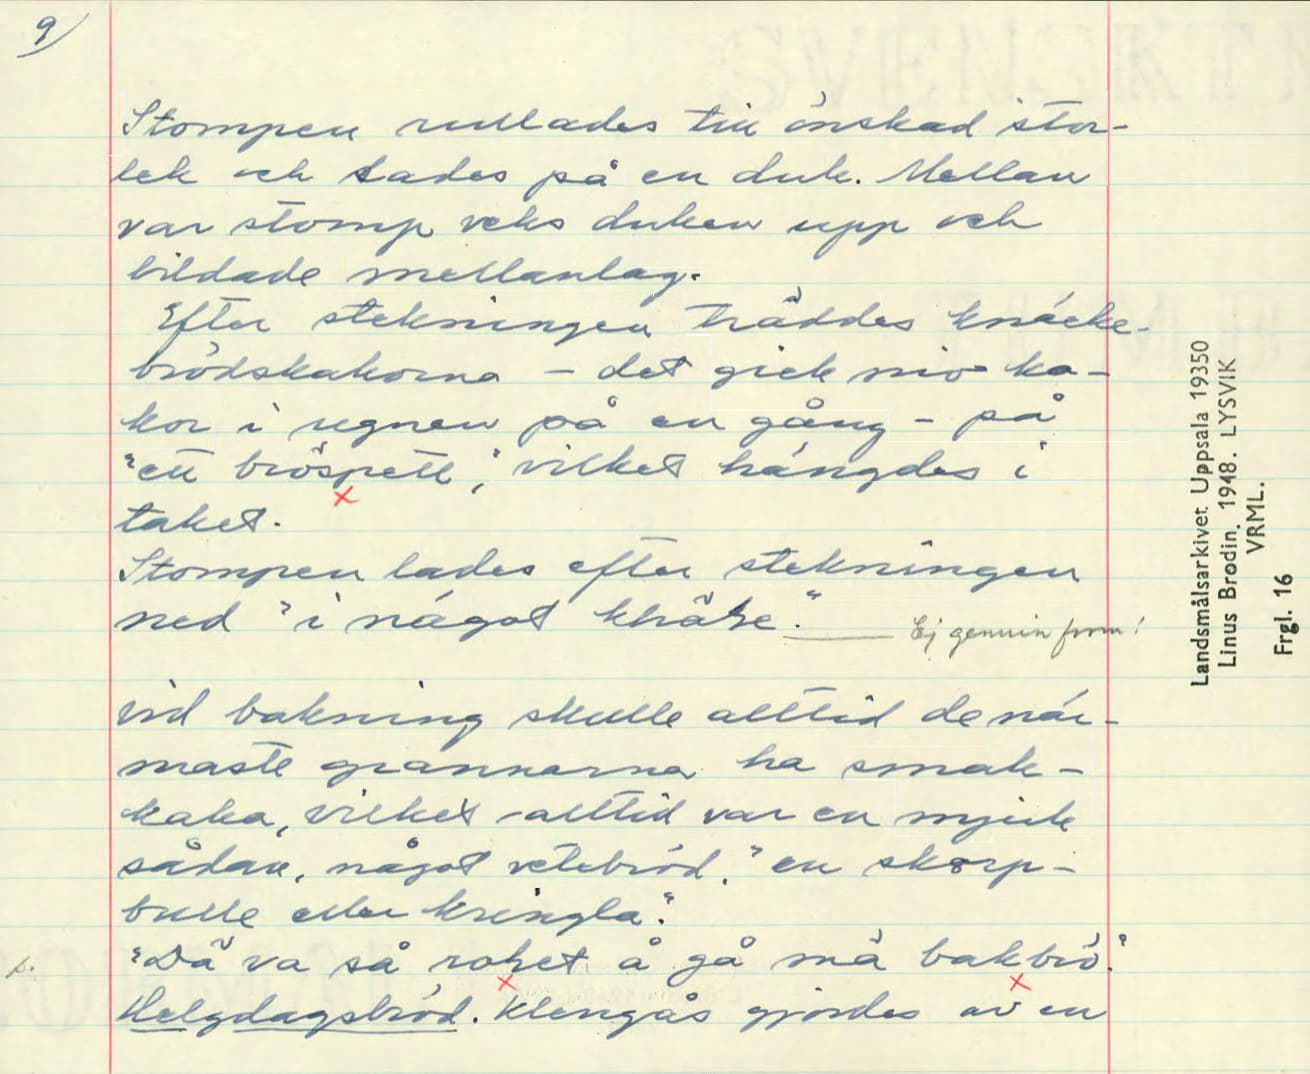 9
Stompen rullades till önskad stor-
lek och lades på en duk. Mellan
var stomp veks duken upp och
bildade mellanlag.
Efter stekningen träddes knäcke-
brödskakorna – det gick nio ka-
kor i ugnen på en gång – på
"ett bröspett", vilket hängdes i
taket.
Stompen lades efter stekningen
ned "i något khäRe." Ej genuin form!
Vid bakning skulle alltid de när-
maste grannarna ha smak-
kaka, vilket alltid var en mjuk
sådan, något vetebröd, "en skorp-
bulle eller kringla."
"Dä va så rohet å gå må bakbrö."
Helgdagsbröd. Klengås gjordes av en
Landsmålsarkivet Uppsala 19350
Linus Brodin. 1948. LYSVIK
VRML.
Frgl. 16